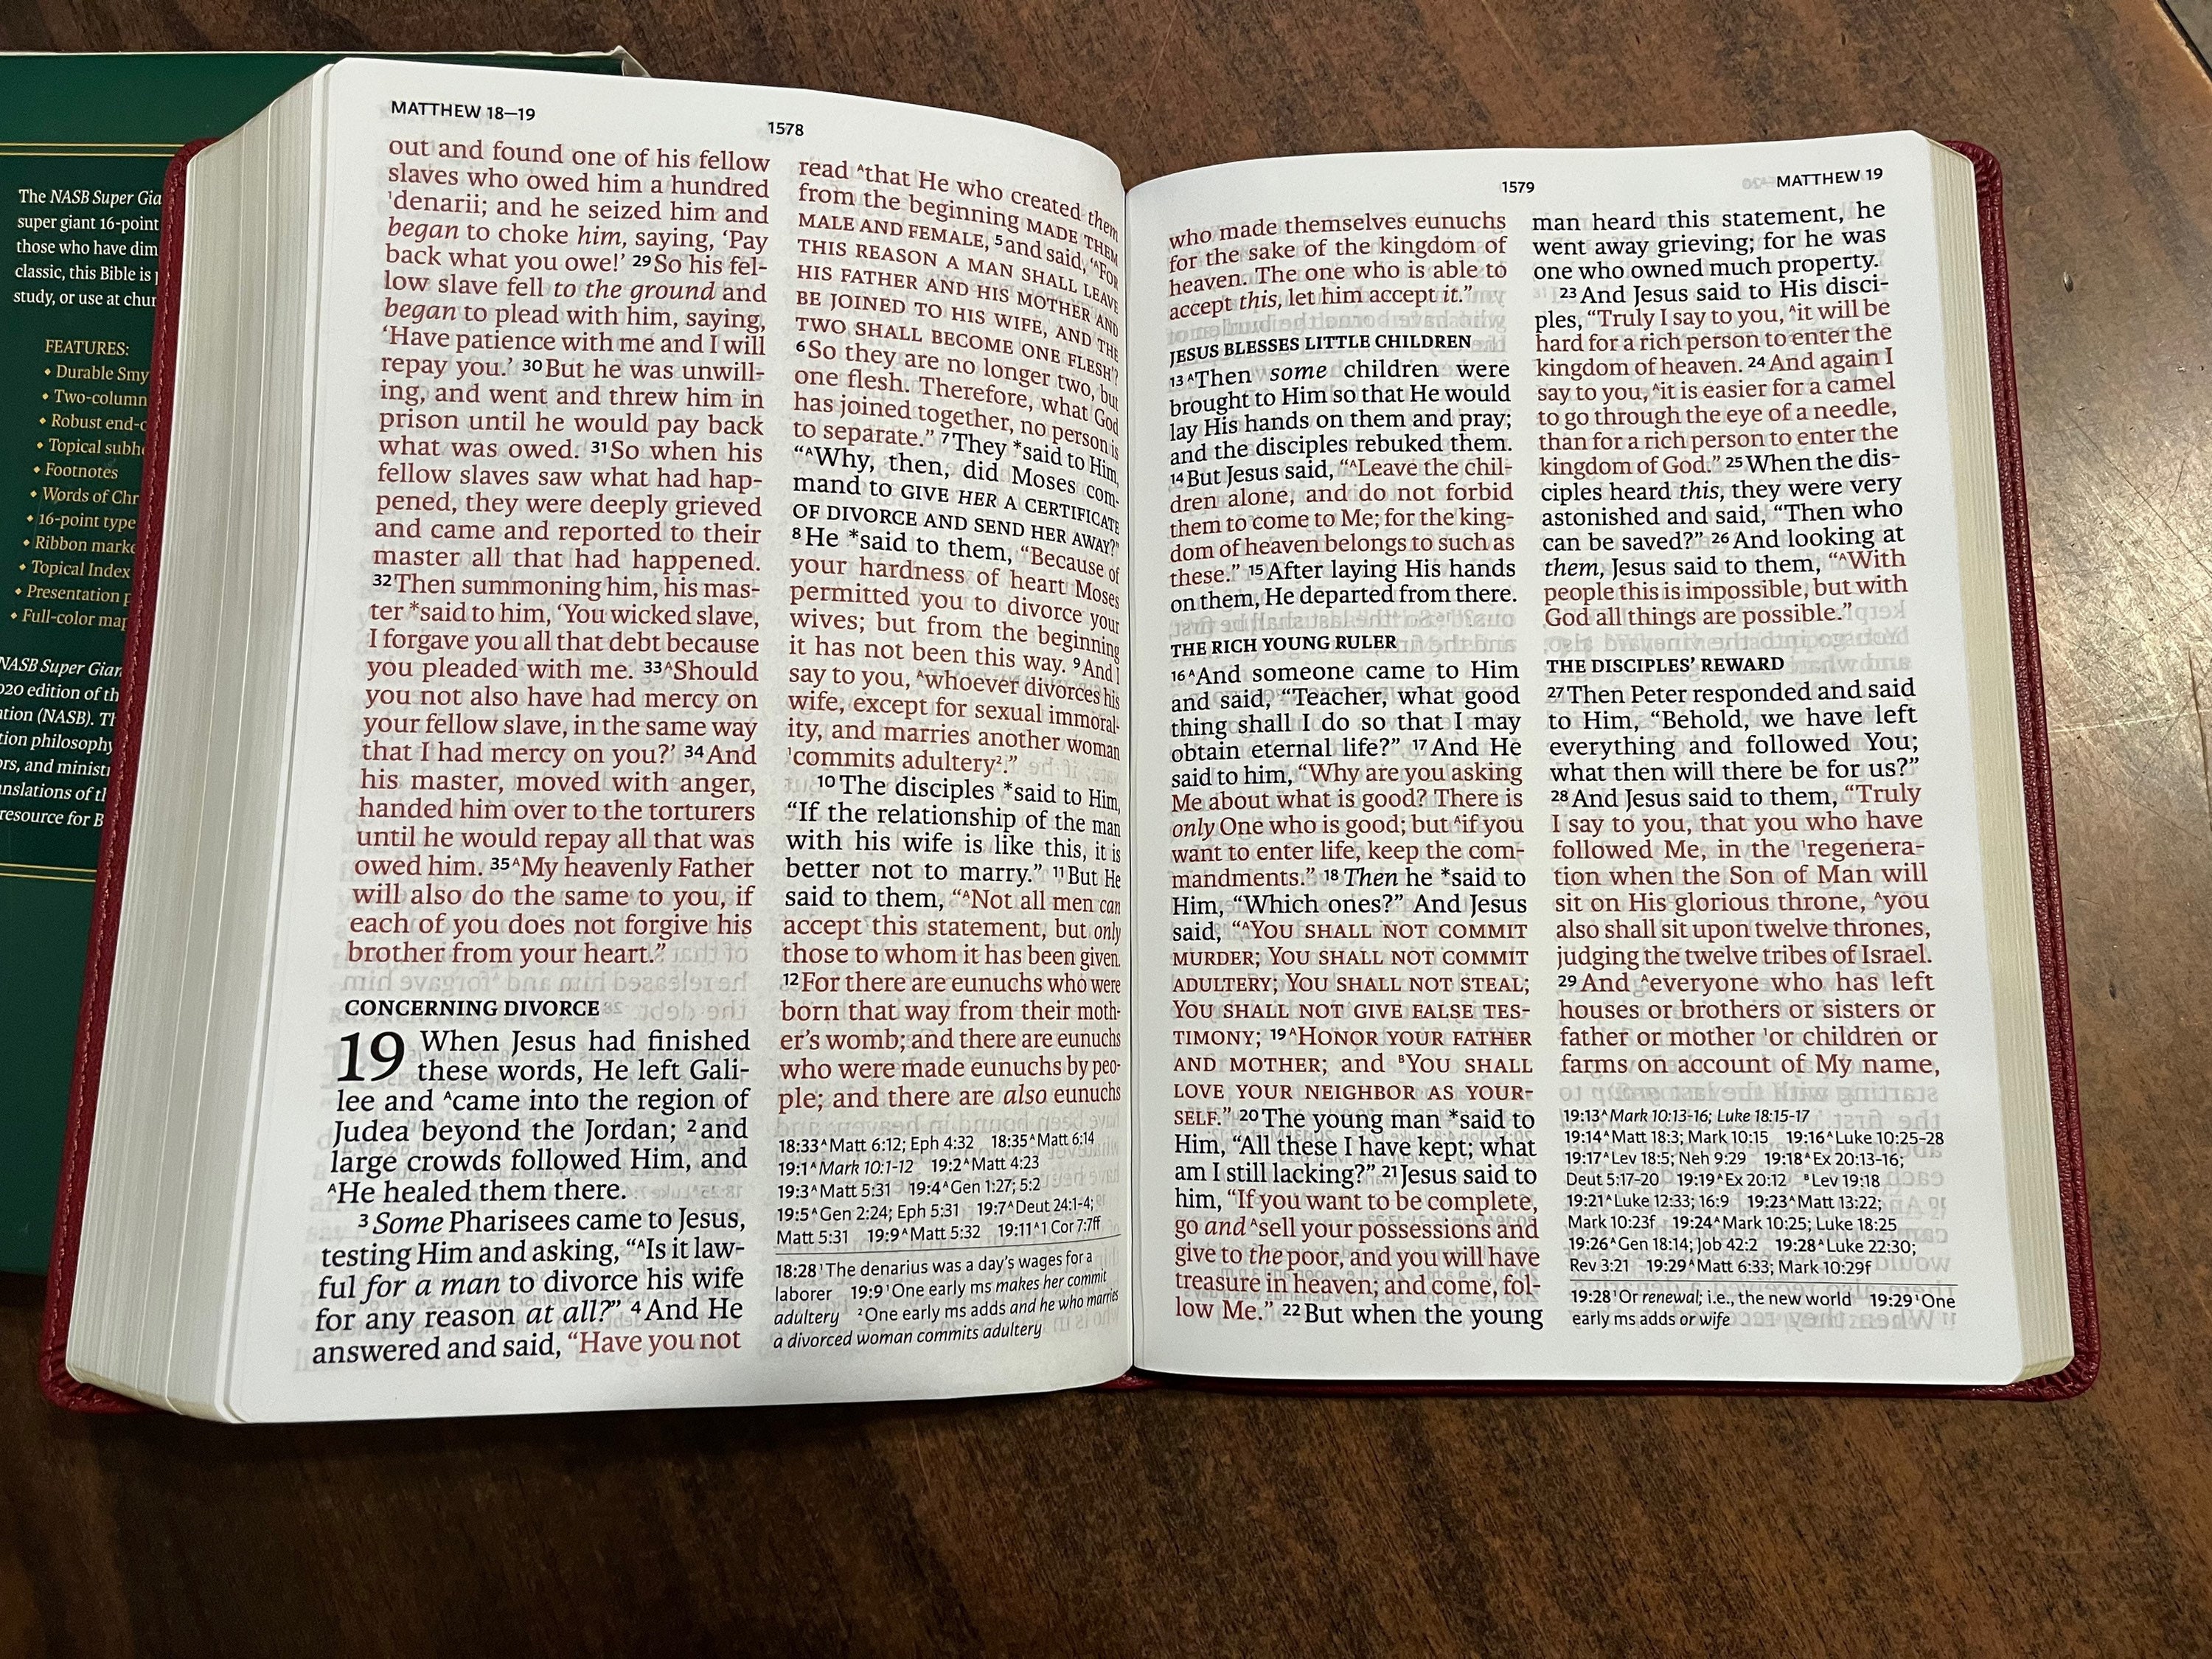 The NASB Super Gia
super giant 16-point
those who have dim
classic, this Bible is
study, or use at chur
FEATURES:
• Durable Smy
• Two-column
• Robust end-c
• Topical subh
• Footnotes
• Words of Chr
• 16-point type
• Ribbon marke
• Topical Index
• Presentation p
• Full-color map
NASB Super Gian
020 edition of th
ation (NASB). Th
tion philosophy
ors, and ministr
anslations of th
resource for B
MATTHEW 18—19
1578
out and found one of his fellow
slaves who owed him a hundred
¹denarii; and he seized him and
began to choke him, saying, ‘Pay
back what you owe!’ 29 So his fel-
low slave fell to the ground and
began to plead with him, saying,
‘Have patience with me and I will
repay you.’ 30 But he was unwill-
ing, and went and threw him in
prison until he would pay back
what was owed. 31 So when his
fellow slaves saw what had hap-
pened, they were deeply grieved
and came and reported to their
master all that had happened.
32 Then summoning him, his mas-
ter *said to him, ‘You wicked slave,
I forgave you all that debt because
you pleaded with me. 33 ᴬShould
you not also have had mercy on
your fellow slave, in the same way
that I had mercy on you?’ 34 And
his master, moved with anger,
handed him over to the torturers
until he would repay all that was
owed him. 35 ᴬMy heavenly Father
will also do the same to you, if
each of you does not forgive his
brother from your heart.”
CONCERNING DIVORCE
19 When Jesus had finished
these words, He left Gali-
lee and ᴬcame into the region of
Judea beyond the Jordan; 2 and
large crowds followed Him, and
ᴬHe healed them there.
3 Some Pharisees came to Jesus,
testing Him and asking, “ᴬIs it law-
ful for a man to divorce his wife
for any reason at all?” 4 And He
answered and said, “Have you not
read ᴬthat He who created them
from the beginning MADE THEM
MALE AND FEMALE, 5 and said, ‘ᴬFOR
THIS REASON A MAN SHALL LEAVE
HIS FATHER AND HIS MOTHER AND
BE JOINED TO HIS WIFE, AND THE
TWO SHALL BECOME ONE FLESH’?
6 So they are no longer two, but
one flesh. Therefore, what God
has joined together, no person is
to separate.” 7 They *said to Him,
“ᴬWhy, then, did Moses com-
mand to GIVE HER A CERTIFICATE
OF DIVORCE AND SEND HER AWAY?”
8 He *said to them, “Because of
your hardness of heart Moses
permitted you to divorce your
wives; but from the beginning
it has not been this way. 9 And I
say to you, ᴬwhoever divorces his
wife, except for sexual immoral-
ity, and marries another woman
¹commits adultery².”
10 The disciples *said to Him,
“If the relationship of the man
with his wife is like this, it is
better not to marry.” 11 But He
said to them, “ᴬNot all men can
accept this statement, but only
those to whom it has been given.
12 For there are eunuchs who were
born that way from their moth-
er’s womb; and there are eunuchs
who were made eunuchs by peo-
ple; and there are also eunuchs
18:33 ᴬMatt 6:12; Eph 4:32 18:35 ᴬMatt 6:14
19:1 ᴬMark 10:1-12 19:2 ᴬMatt 4:23
19:3 ᴬMatt 5:31 19:4 ᴬGen 1:27; 5:2
19:5 ᴬGen 2:24; Eph 5:31 19:7 ᴬDeut 24:1-4;
Matt 5:31 19:9 ᴬMatt 5:32 19:11 ᴬ1 Cor 7:7ff
18:28 ¹The denarius was a day’s wages for a
laborer 19:9 ¹One early ms makes her commit
adultery ²One early ms adds and he who marries
a divorced woman commits adultery
1579
MATTHEW 19
who made themselves eunuchs
for the sake of the kingdom of
heaven. The one who is able to
accept this, let him accept it.”
JESUS BLESSES LITTLE CHILDREN
13 ᴬThen some children were
brought to Him so that He would
lay His hands on them and pray;
and the disciples rebuked them.
14 But Jesus said, “ᴬLeave the chil-
dren alone, and do not forbid
them to come to Me; for the king-
dom of heaven belongs to such as
these.” 15 After laying His hands
on them, He departed from there.
THE RICH YOUNG RULER
16 ᴬAnd someone came to Him
and said, “Teacher, what good
thing shall I do so that I may
obtain eternal life?” 17 And He
said to him, “Why are you asking
Me about what is good? There is
only One who is good; but ᴬif you
want to enter life, keep the com-
mandments.” 18 Then he *said to
Him, “Which ones?” And Jesus
said, “ᴬYOU SHALL NOT COMMIT
MURDER; YOU SHALL NOT COMMIT
ADULTERY; YOU SHALL NOT STEAL;
YOU SHALL NOT GIVE FALSE TES-
TIMONY; 19 ᴬHONOR YOUR FATHER
AND MOTHER; and ᴮYOU SHALL
LOVE YOUR NEIGHBOR AS YOUR-
SELF.” 20 The young man *said to
Him, “All these I have kept; what
am I still lacking?” 21 Jesus said to
him, “If you want to be complete,
go and ᴬsell your possessions and
give to the poor, and you will have
treasure in heaven; and come, fol-
low Me.” 22 But when the young
man heard this statement, he
went away grieving; for he was
one who owned much property.
23 And Jesus said to His disci-
ples, “Truly I say to you, ᴬit will be
hard for a rich person to enter the
kingdom of heaven. 24 And again I
say to you, ᴬit is easier for a camel
to go through the eye of a needle,
than for a rich person to enter the
kingdom of God.” 25 When the dis-
ciples heard this, they were very
astonished and said, “Then who
can be saved?” 26 And looking at
them, Jesus said to them, “ᴬWith
people this is impossible, but with
God all things are possible.”
THE DISCIPLES’ REWARD
27 Then Peter responded and said
to Him, “Behold, we have left
everything and followed You;
what then will there be for us?”
28 And Jesus said to them, “Truly
I say to you, that you who have
followed Me, in the ¹regenera-
tion when the Son of Man will
sit on His glorious throne, ᴬyou
also shall sit upon twelve thrones,
judging the twelve tribes of Israel.
29 And ᴬeveryone who has left
houses or brothers or sisters or
father or mother ¹or children or
farms on account of My name,
19:13 ᴬMark 10:13-16; Luke 18:15-17
19:14 ᴬMatt 18:3; Mark 10:15 19:16 ᴬLuke 10:25-28
19:17 ᴬLev 18:5; Neh 9:29 19:18 ᴬEx 20:13-16;
Deut 5:17-20 19:19 ᴬEx 20:12 ᴮLev 19:18
19:21 ᴬLuke 12:33; 16:9 19:23 ᴬMatt 13:22;
Mark 10:23f 19:24 ᴬMark 10:25; Luke 18:25
19:26 ᴬGen 18:14; Job 42:2 19:28 ᴬLuke 22:30;
Rev 3:21 19:29 ᴬMatt 6:33; Mark 10:29f
19:28 ¹Or renewal; i.e., the new world 19:29 ¹One
early ms adds or wife